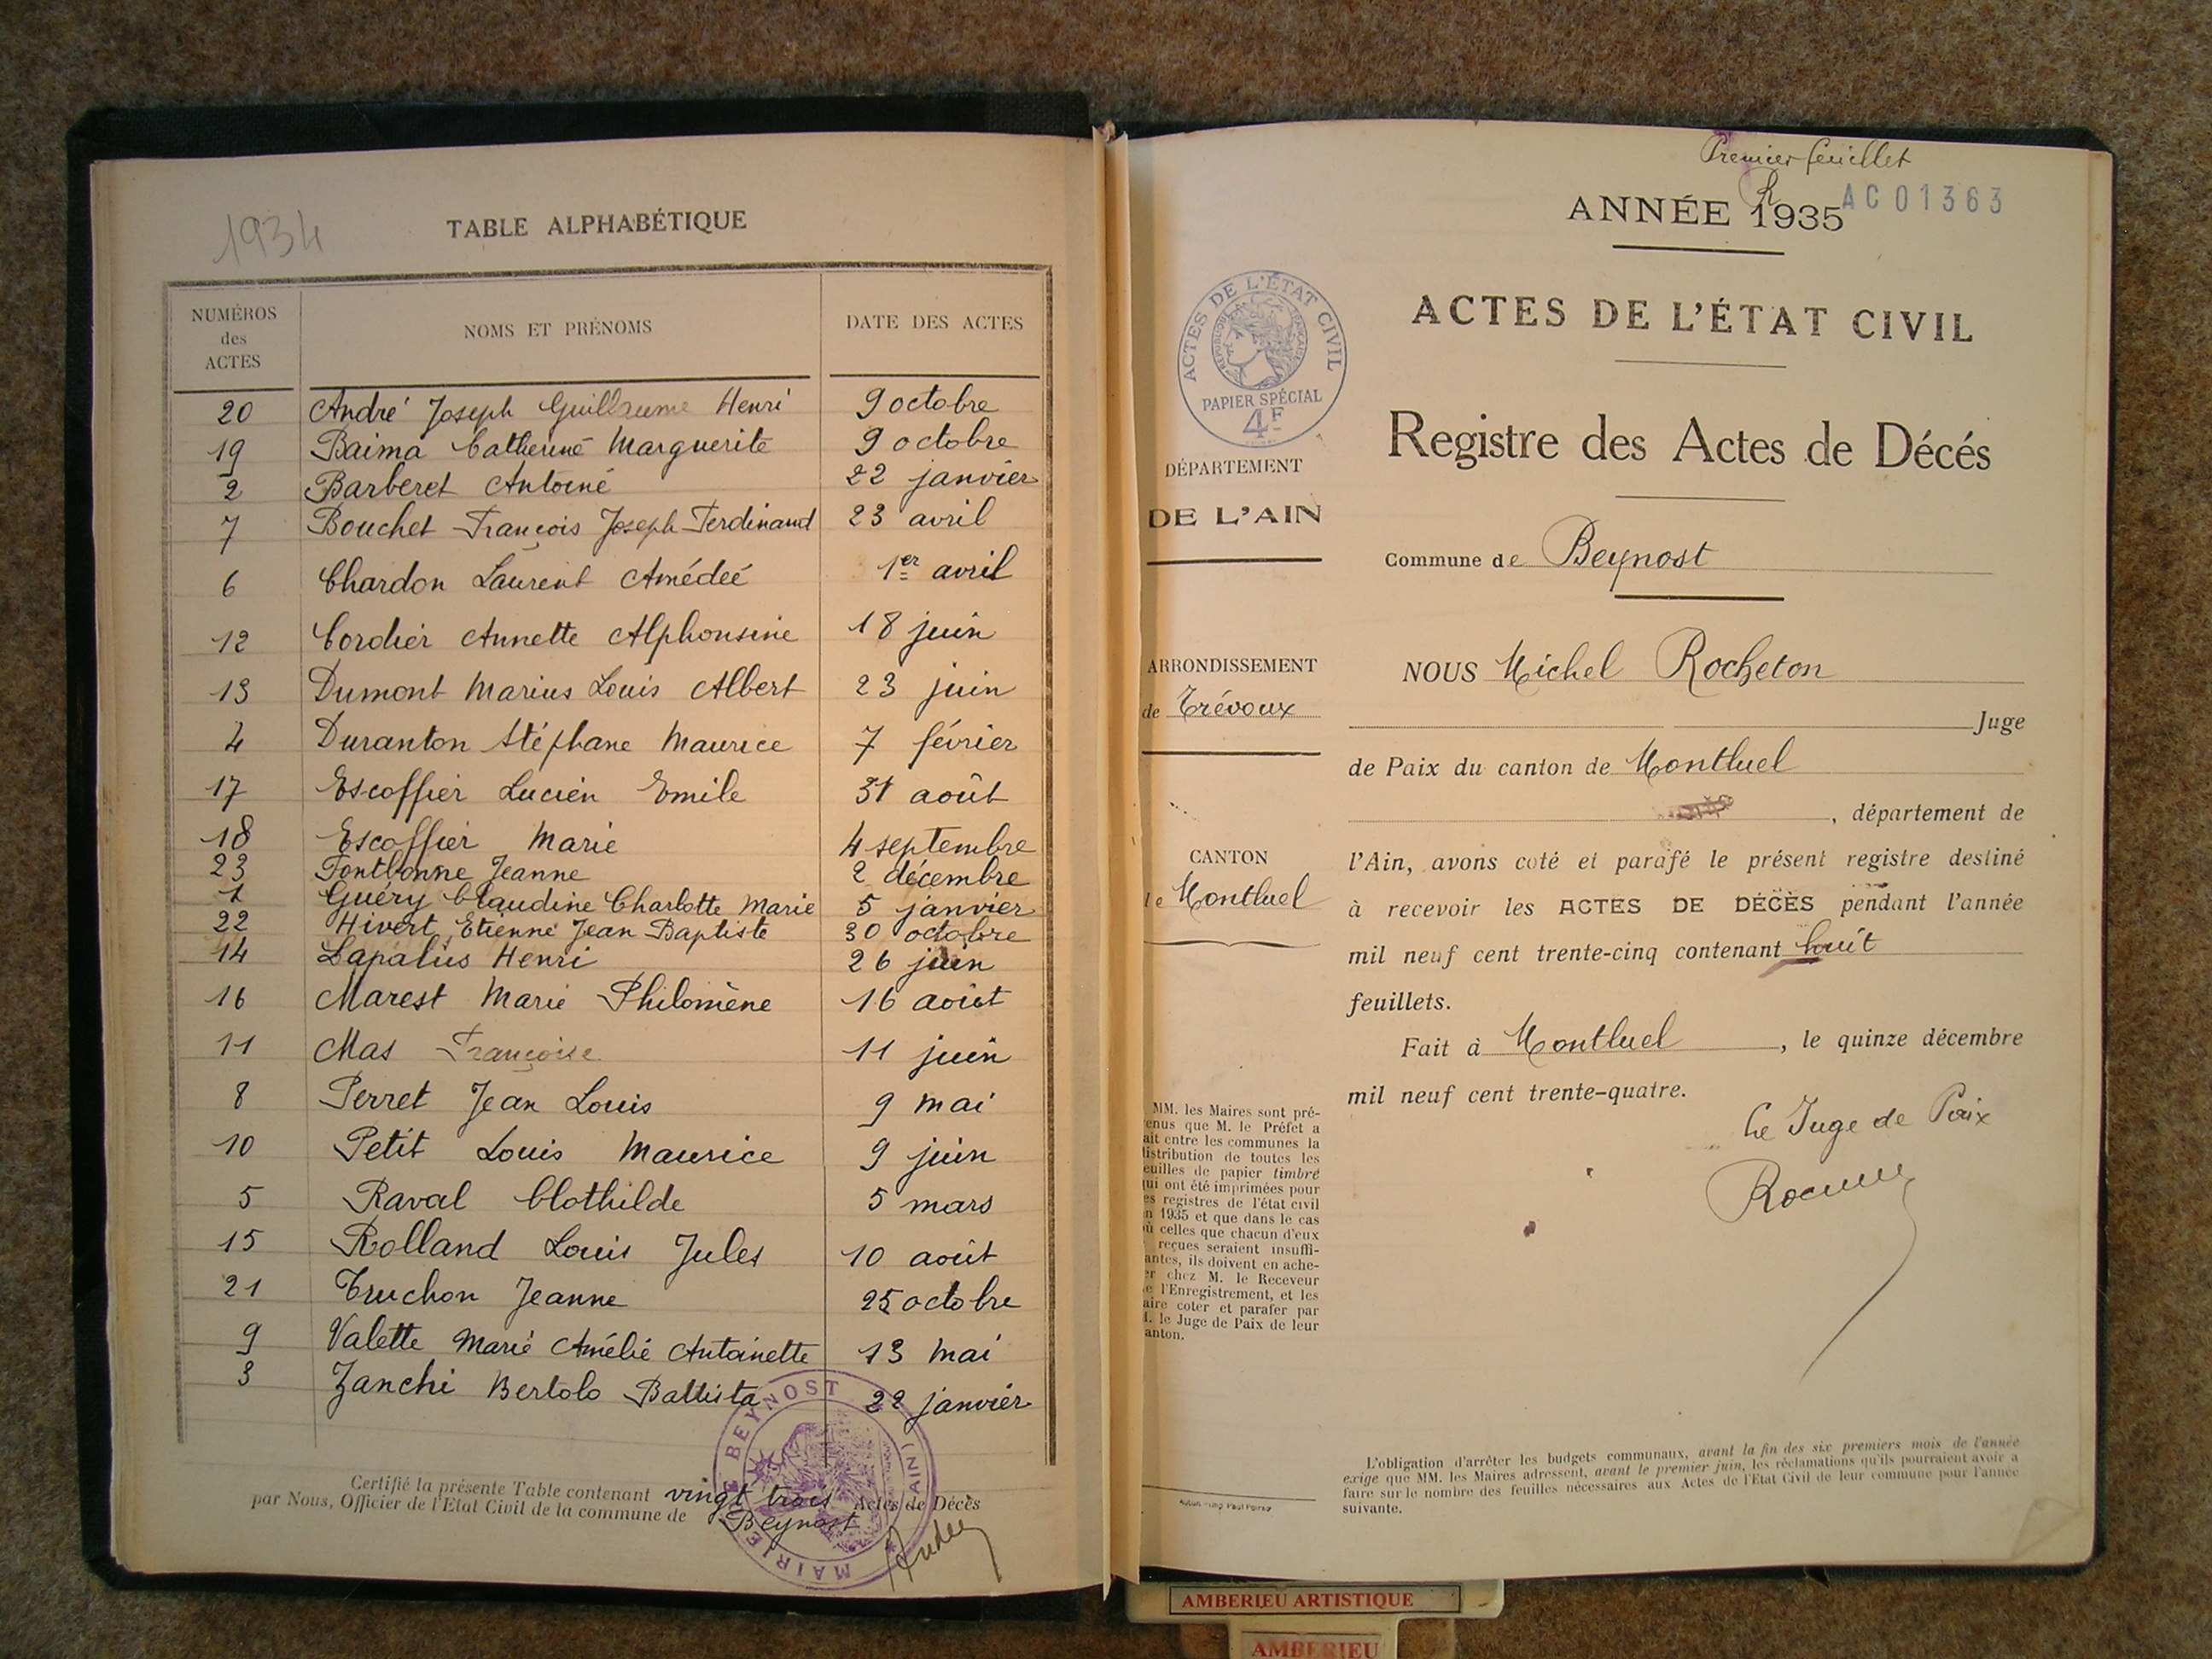 1934
TABLE ALPHABÉTIQUE
NUMÉROS
des
ACTES
NOMS ET PRÉNOMS
DATE DES ACTES
20 André Joseph Guillaume Henri 9 octobre
19 Baima Catherine Marguerite 9 octobre
2 Barberet Antoine 22 janvier
7 Bouchet François Joseph Ferdinand 23 avril
6 Chardon Laurent Amédeé 1er avril
12 Cordier Annette Alphonsine 18 juin
13 Dumont Marius Louis Albert 23 juin
4 Duranton Stéphane Maurice 7 février
17 Escoffier Lucien Emile 31 août
18 Escoffier Marie 4 septembre
23 Fontbonne Jeanne 2 décembre
1 Guéry Claudine Charlotte Marie 5 janvier
22 Hivert Etienne Jean Baptiste 30 octobre
14 Lapalus Henri 26 juin
16 Marest Marie Philomène 16 août
11 Mas Françoise 11 juin
8 Perret Jean Louis 9 mai
10 Petit Louis Maurice 9 juin
5 Raval Clothilde 5 mars
15 Rolland Louis Jules 10 août
21 Truchon Jeanne 25 octobre
9 Valette Marie Amélie Antoinette 13 mai
3 Zanchi Bertolo Battista 22 janvier
Certifié la présente Table contenant vingt trois Actes de Décès
par Nous, Officier de l'Etat Civil de la commune de Beynost
MAIRIE DE BEYNOST (AIN)
Premier feuillet
ANNÉE 1935
AC01363
ACTES DE L'ÉTAT CIVIL
RÉPUBLIQUE FRANÇAISE
PAPIER SPÉCIAL
4F
ACTES DE L'ÉTAT CIVIL
Registre des Actes de Décés
Commune de Beynost
DÉPARTEMENT
DE L'AIN
ARRONDISSEMENT
de Trévoux
CANTON
de Montluel
NOUS Michel Rocheton
Juge
de Paix du canton de Montluel
, département de
l'Ain, avons coté et parafé le présent registre destiné
à recevoir les ACTES DE DÉCÈS pendant l'année
mil neuf cent trente-cinq contenant huit
feuillets.
Fait à Montluel, le quinze décembre
mil neuf cent trente-quatre.
Le Juge de Paix
MM. les Maires sont pré-
enus que M. le Préfet a
ait entre les communes la
istribution de toutes les
euilles de papier timbré
qui ont été imprimées pour
es registres de l'état civil
n 1935 et que dans le cas
où celles que chacun d'eux
reçues seraient insuffi-
antes, ils doivent en ache-
er chez M. le Receveur
e l'Enregistrement, et les
aire coter et parafer par
M. le Juge de Paix de leur
anton.
L'obligation d'arrêter les budgets communaux, avant la fin des six premiers mois de l'année
exige que MM. les Maires adressent, avant le premier juin, les réclamations qu'ils pourraient avoir à
faire sur le nombre des feuilles nécessaires aux Actes de l'Etat Civil de leur commune pour l'année
suivante.
AMBERIEU ARTISTIQUE
AMBERIEU